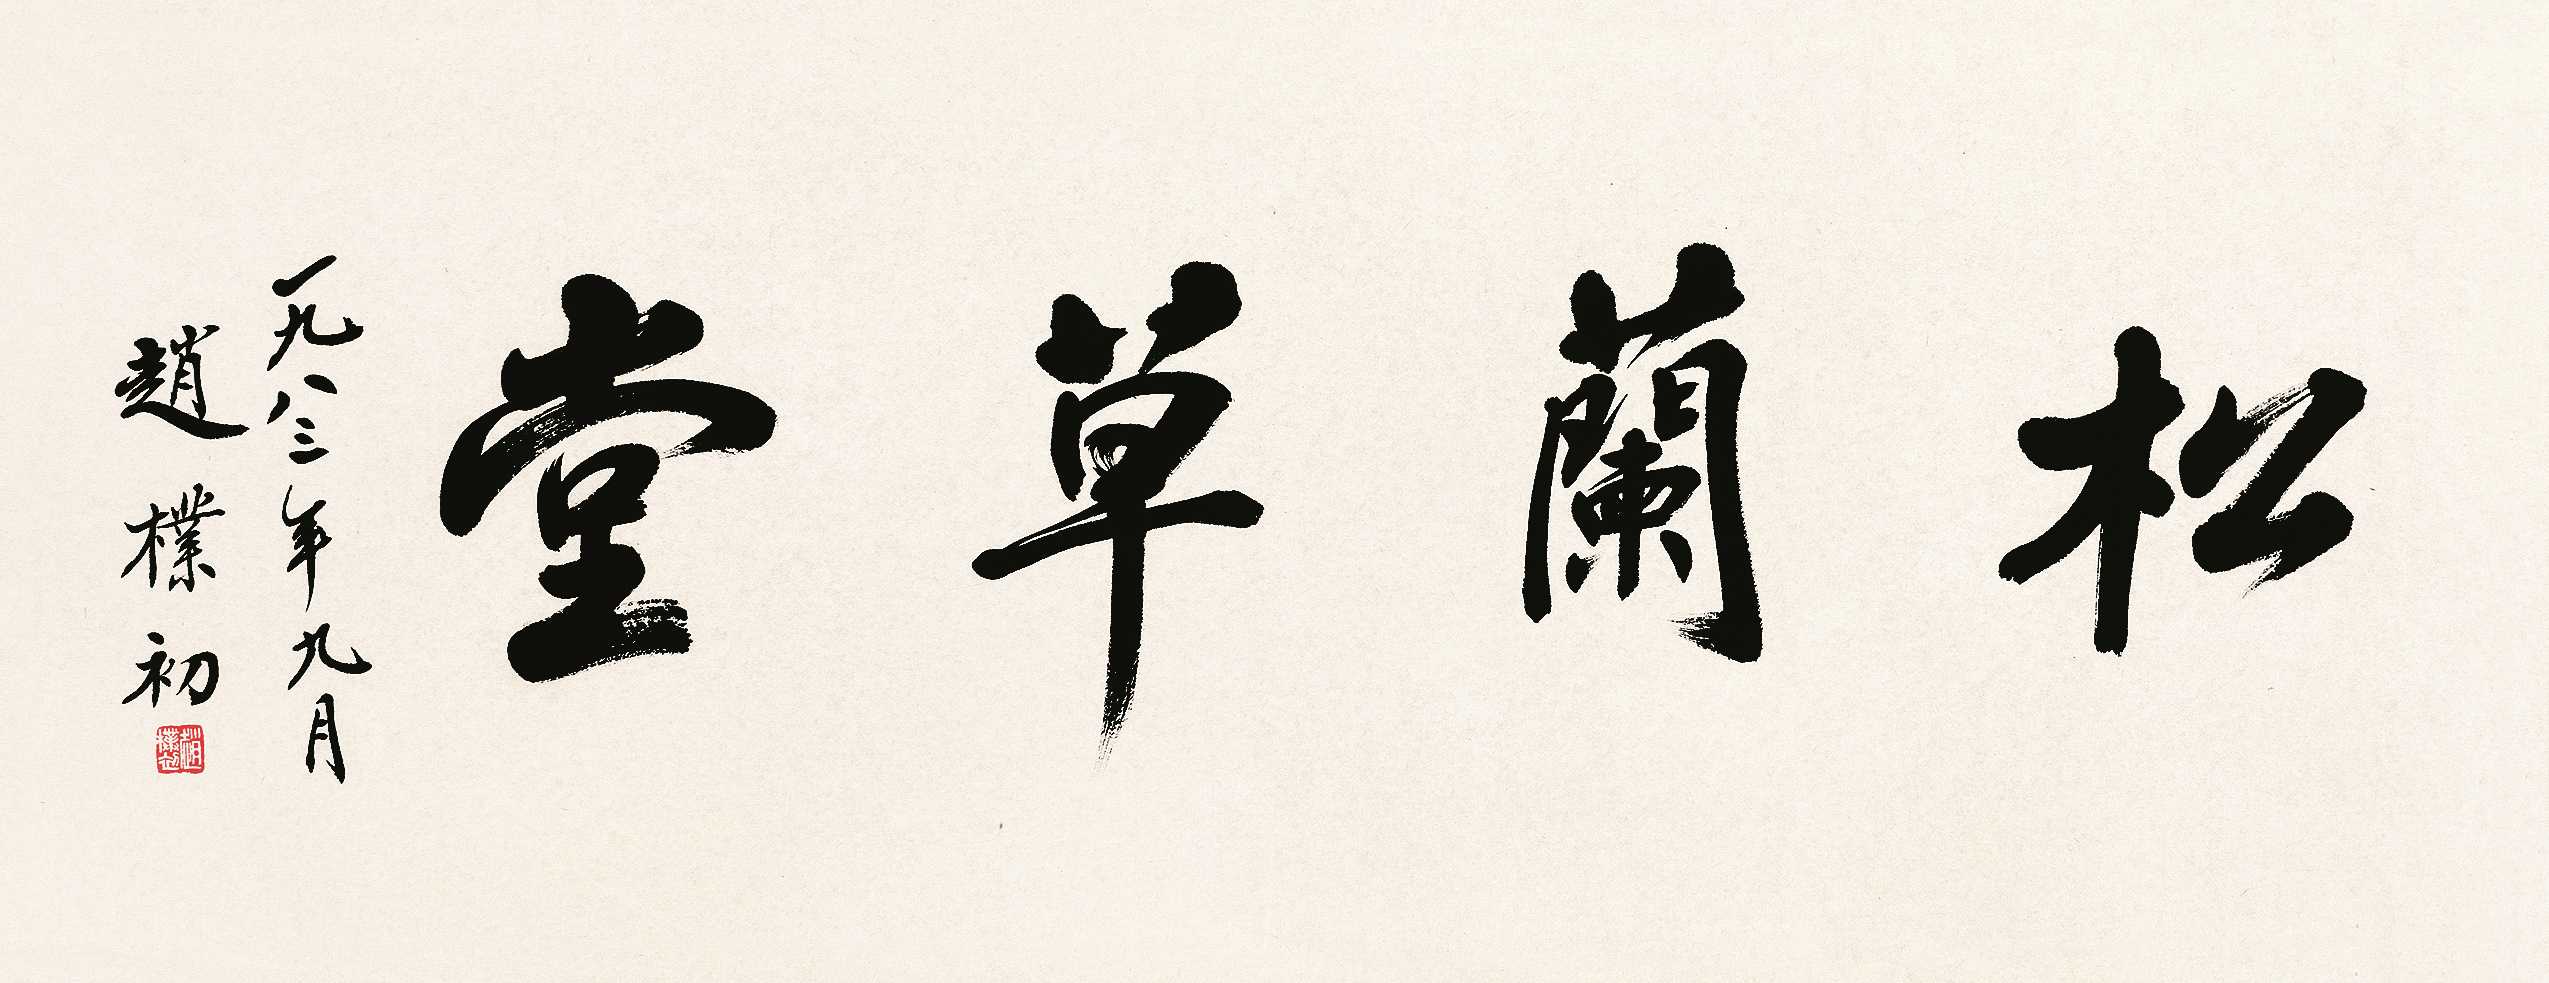 松蘭草堂
一九八三年九月
趙樸初
趙樸初